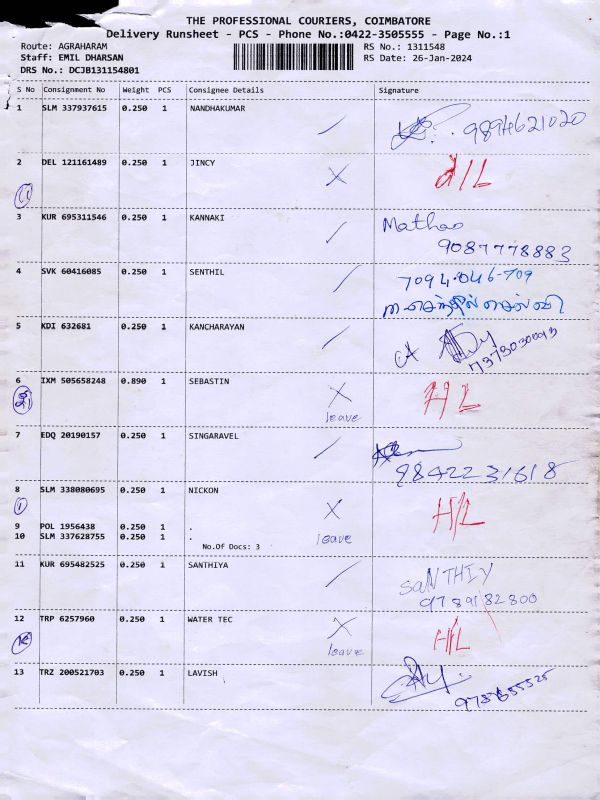 THE PROFESSIONAL COURIERS, COIMBATORE
Delivery Runsheet - PCS - Phone No.:0422-3505555 - Page No.:1
Route: AGRAHARAM RS No.: 1311548
Staff: EMIL DHARSAN RS Date: 26-Jan-2024
DRS No.: DCJB131154801
S No Consignment No Weight PCS Consignee Details Signature
1 SLM 337937615 0.250 1 NANDHAKUMAR 9894621020
2 DEL 121161489 0.250 1 JINCY d/L
3 KUR 695311546 0.250 1 KANNAKI Mathao
9087778883
4 SVK 60416085 0.250 1 SENTHIL 7094-046-709
5 KDI 632681 0.250 1 KANCHARAYAN
7373030093
6 IXM 505658248 0.890 1 SEBASTIN HL
leave
7 EDQ 20190157 0.250 1 SINGARAVEL
9842231618
8 SLM 338080695 0.250 1 NICKON H/L
9 POL 1956438 0.250 1 .
10 SLM 337628755 0.250 1 . leave
No.Of Docs: 3
11 KUR 695482525 0.250 1 SANTHIYA SANTHIY
9789182800
12 TRP 6257960 0.250 1 WATER TEC H/L
leave
13 TRZ 200521703 0.250 1 LAVISH